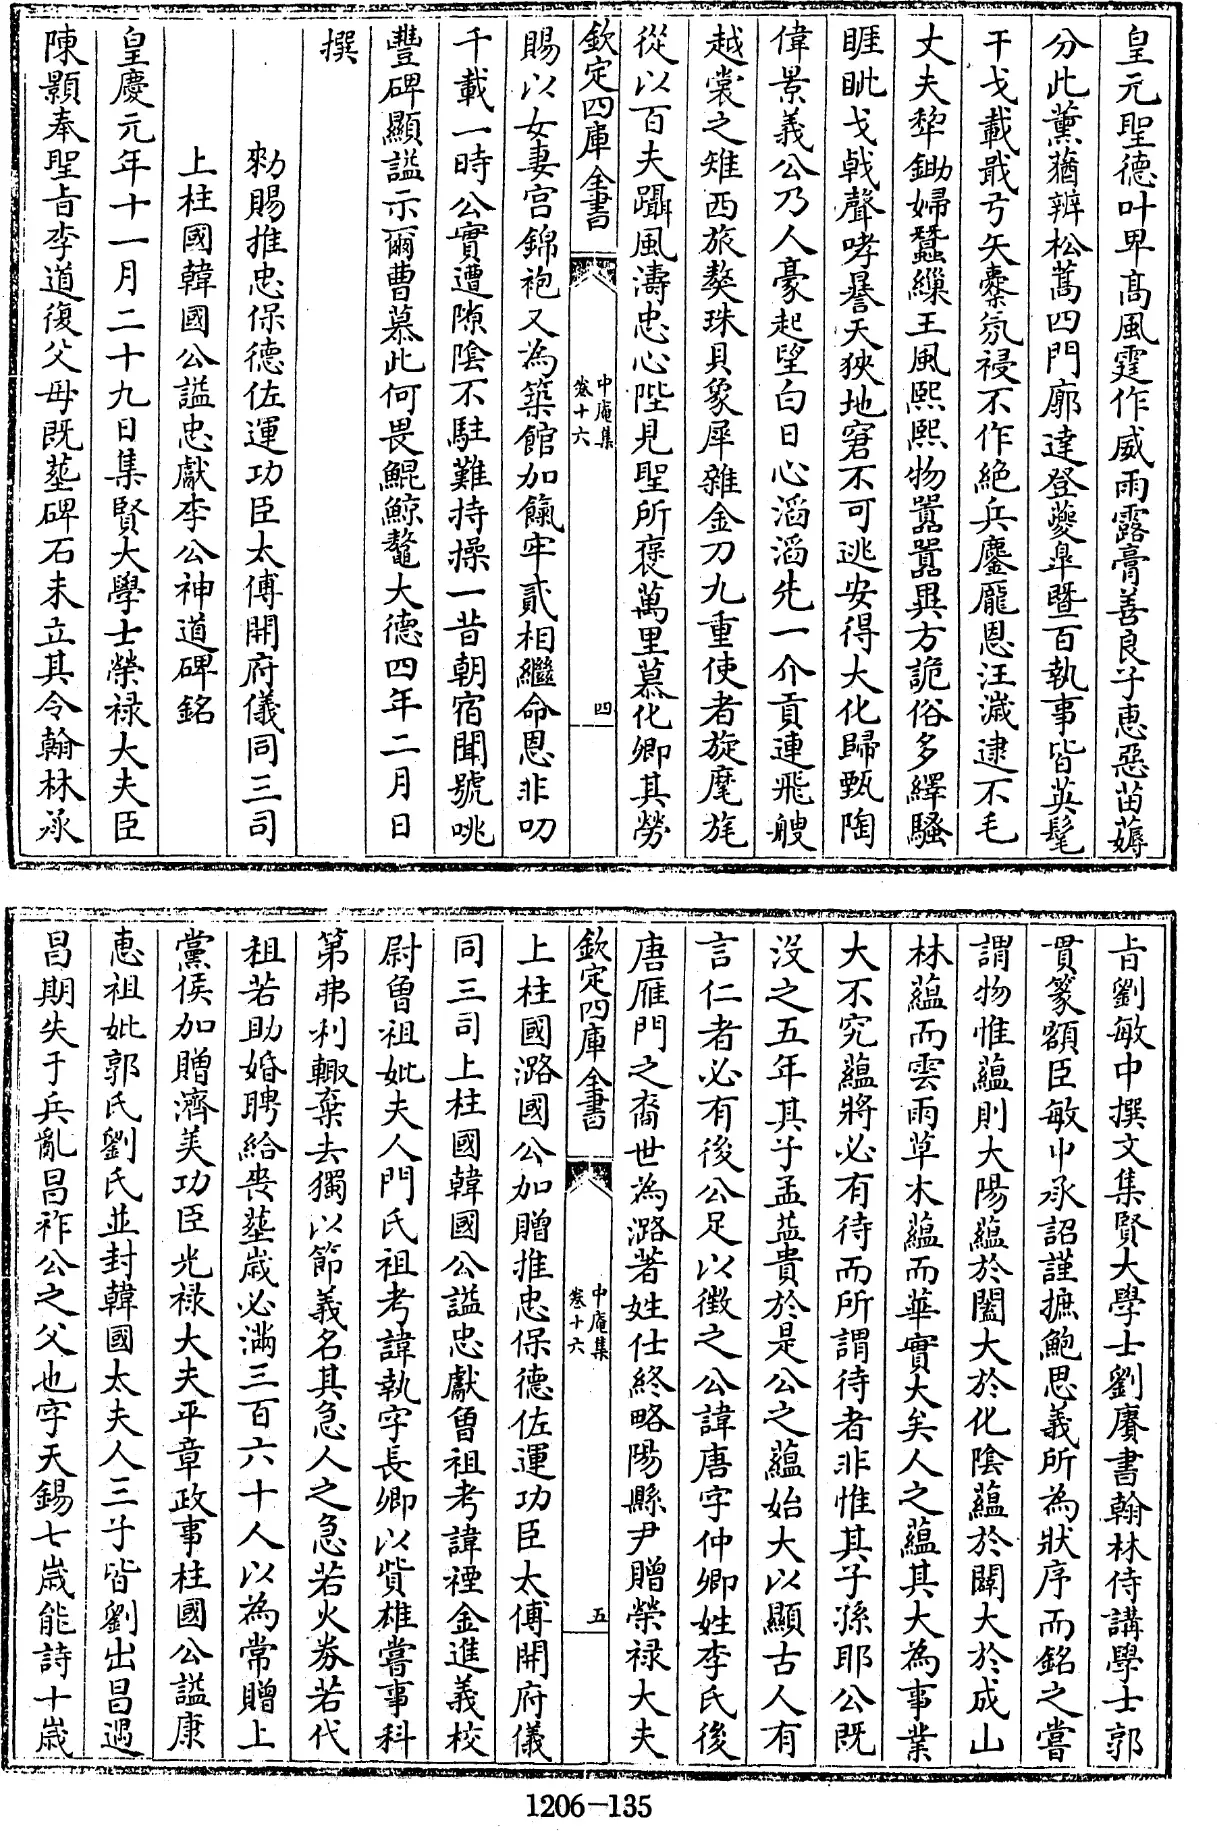 皇元聖德叶卑高風霆作威雨露膏善良孚惠惡苗薅
分此薰蕕辨松蒿四門廓達登夔臯暨百執事皆英髦
干戈載戢弓矢櫜氛祲不作絶兵鏖龎恩汪濊逮不毛
丈夫犂鋤婦蠶繅王風熙熙物囂囂異方詭俗多繹騷
睚眦戈戟聲哮㬥天狹地窘不可逃安得大化歸甄陶
偉哉義公乃人豪起望白日心滔滔先一介貢連飛艘
越裳之雉西旅獒珠貝象犀雜金刀九重使者旋麾旄
從以百夫躡風濤忠心陛見聖所褒萬里慕化卿其勞
欽定四庫全書
中庵集
卷十六
四
賜以女妻宫錦袍又為築館加餼牢貳相繼命恩非叨
千載一時公實遭隙陰不駐難持操一昔朝宿聞號咷
豐碑顯諡示爾曹慕此何畏鯤鯨鼇大德四年二月日
撰
勑賜推忠保德佐運功臣太傅開府儀同三司
上柱國韓國公諡忠獻李公神道碑銘
皇慶元年十一月二十九日集賢大學士榮禄大夫臣
陳顥奉聖㫖李道復父母既塟碑石未立其令翰林承
㫖劉敏中撰文集賢大學士劉賡書翰林侍講學士郭
貫篆額臣敏中承詔謹摭鮑思義所為狀序而銘之嘗
謂物惟藴則大陽藴於闔大於化陰藴於闢大於成山
林藴而雲雨草木藴而華實大矣人之藴其大為事業
大不究藴將必有待而所謂待者非惟其子孫耶公既
没之五年其子孟葢貴於是公之藴始大以顯古人有
言仁者必有後公足以徴之公諱唐字仲卿姓李氏後
唐雁門之裔世為潞著姓仕終略陽縣尹贈榮禄大夫
欽定四庫全書
中庵集
卷十六
五
上柱國潞國公加贈推忠保德佐運功臣太傅開府儀
同三司上柱國韓國公諡忠獻曾祖考諱禋金進義校
尉曾祖妣夫人門氏祖考諱執字長卿以貲雄嘗事科
第弗利輙棄去獨以節義名其急人之急若火劵若代
租若助婚聘給喪塟歳必滿三百六十人以為常贈上
黨侯加贈濟美功臣光禄大夫平章政事柱國公諡康
惠祖妣郭氏劉氏並封韓國太夫人三子皆劉出昌遇
昌期失于兵亂昌祚公之父也字天錫七歳能詩十歳
1206-135